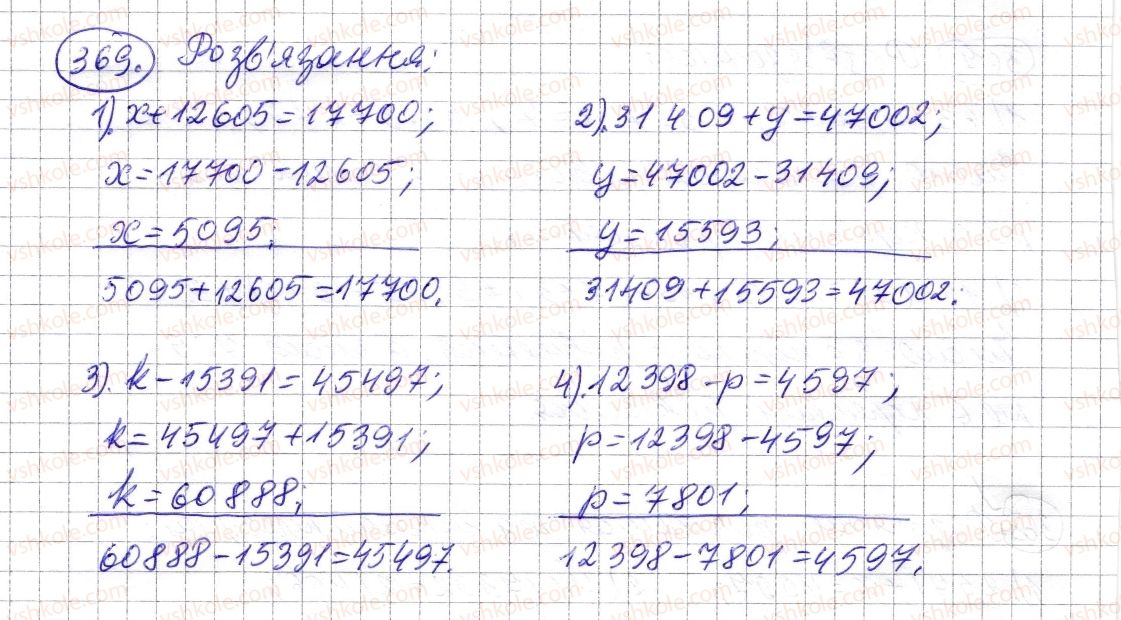 369. Розв'язання:
1). x+12605=17700;
x=17700-12605;
x=5095;
5095+12605=17700.
2). 31409+y=47002;
y=47002-31409;
y=15593;
31409+15593=47002.
3). k-15391=45497;
k=45497+15391;
k=60888;
60888-15391=45497.
4). 12398-p=4597;
p=12398-4597;
p=7801;
12398-7801=4597.
vshkole.com